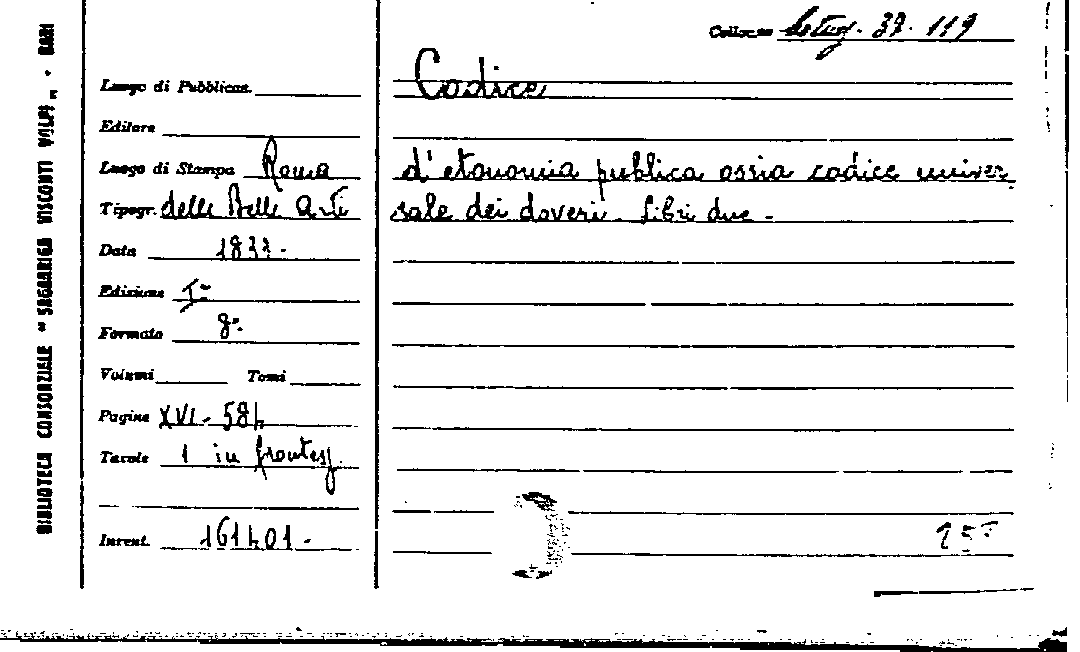 BIBLIOTECA CONSORZIALE "SAGARRIGA VISCONTI VOLPI„ - BARI
Collocaz. 37. 119
Luogo di Pubblicaz.
Codice
Editore
Luogo di Stampa Roma
d'economia pubblica ossia codice univer
Tipogr. delle Belle Arti
sale dei doveri. Libri due -
Data 1833 -
Edizione Iª
Formato 8°
Volumi Tomi
Pagine XVI - 584
Tavole 1 in frontesp.
Invent. 161401 -